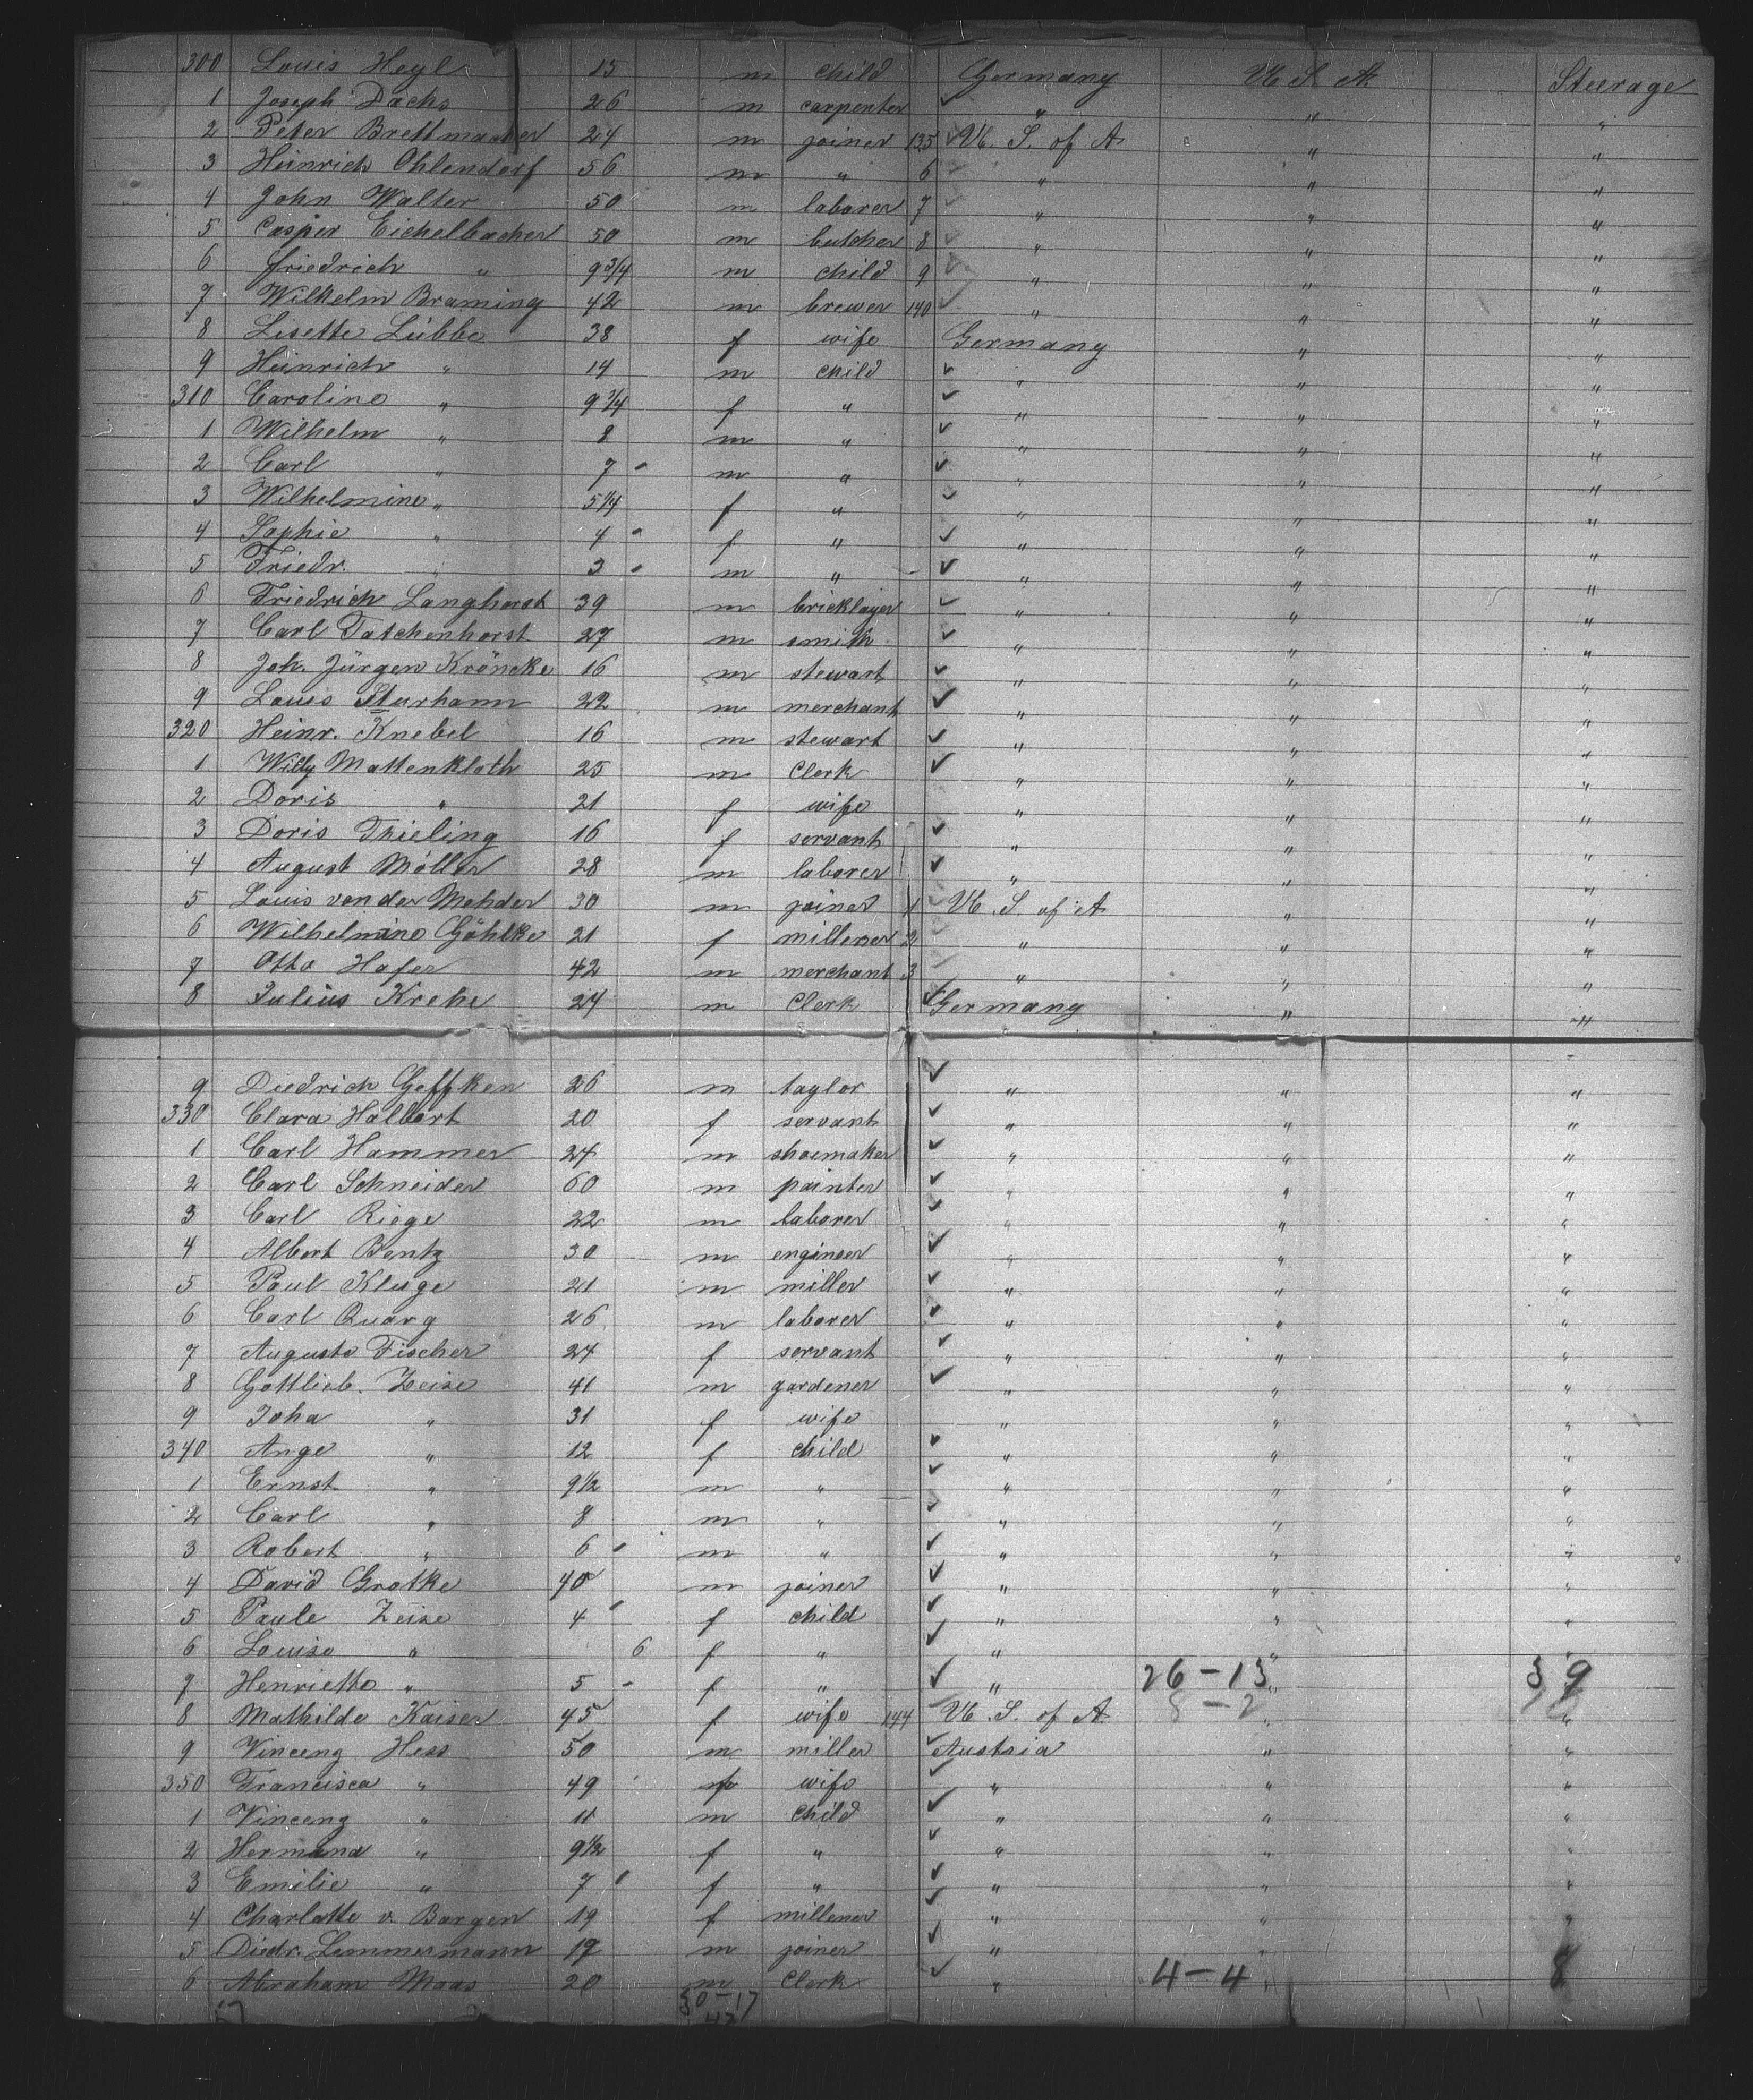 300 Louis Heyl 15 m child Germany U S A Steerage
1 Joseph Dachs 26 m carpenter " " "
2 Peter Brettmacher 24 m joiner 135 U. S. of A. " "
3 Heinrich Ohlendorf 56 m " 6 " " "
4 John Walter 50 m laborer 7 " " "
5 Casper Eichelbacher 50 m butcher 8 " " "
6 Friedrich " 9 3/4 m child 9 " " "
7 Wilhelm Braming 42 m brewer 140 " " "
8 Lisette Lübbe 38 f wife Germany " "
9 Heinrich " 14 m child " " "
310 Caroline " 9 3/4 f " " " "
1 Wilhelm " 8 m " " " "
2 Carl " 7 m " " " "
3 Wilhelmine " 5 1/4 f " " " "
4 Sophie " 4 f " " " "
5 Friedr. " 3 m " " " "
6 Friedrich Langhorst 39 m bricklayer " " "
7 Carl Tatchenhorst 27 m smith " " "
8 Joh. Jürgen Kröncke 16 m stewart " " "
9 Louis Sturhann 22 m merchant " " "
320 Heinr. Knebel 16 m stewart " " "
1 Willy Mattenkloth 25 m Clerk " " "
2 Doris " 21 f wife " " "
3 Doris Thieling 16 f servant " " "
4 August Möller 28 m laborer " " "
5 Louis von der Mehden 30 m joiner 1 U. S. of A " "
6 Wilhelmine Göhlke 21 f millener 2 " " "
7 Otto Hafer 42 m merchant 3 " " "
8 Julius Krehe 24 m Clerk Germany " "
9 Diedrich Geffken 26 m taylor " " "
330 Clara Halbert 20 f servant " " "
1 Carl Hammer 24 m shoemaker " " "
2 Carl Schneider 60 m painter " " "
3 Carl Riege 22 m laborer " " "
4 Albert Bentz 30 m engineer " " "
5 Paul Kluge 21 m miller " " "
6 Carl Quarg 26 m laborer " " "
7 Auguste Fischer 24 f servant " " "
8 Gottlieb. Zeise 41 m gardener " " "
9 Joha " 31 f wife " " "
340 Ange " 12 f child " " "
1 Ernst " 9 1/2 m " " " "
2 Carl " 8 m " " " "
3 Robert " 6 m " " " "
4 David Gratke 40 m joiner " " "
5 Paule Zeise 4 f child " " "
6 Louise " 6 f " " " "
7 Henriette " 5 f " " 26-13 " 39
8 Mathilde Kaiser 45 f wife 144 U. S. of A. " "
9 Vincenz Hess 50 m miller Austria " "
350 Francisca " 49 f wife " " "
1 Vincenz " 11 m Child " " "
2 Hermina " 9 1/2 f " " " "
3 Emilie " 7 f " " " "
4 Charlotte v. Bargen 19 f millener " " "
5 Diedr. Lemmermann 17 m joiner " " "
6 Abraham Maas 20 m Clerk " 4-4 " 8
57 30-17
47